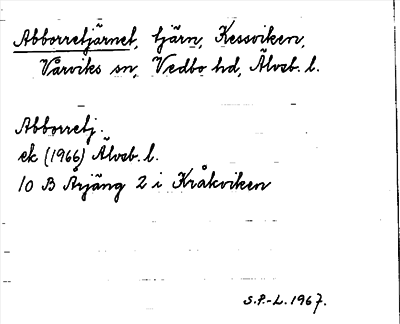 Abborretjärnet, tjärn, Kessviken,
Vårviks sn, Vedbo hd, Älvsb. l.
Abborretj.
ek (1966) Älvsb. l.
10 B Årjäng 2 i Kråkviken
S.P.-L. 1967.